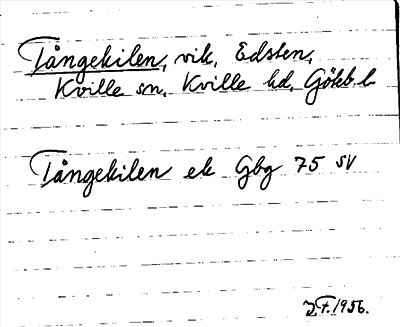 Tångekilen, vik, Edsten,
Kville sn, Kville hd, Göteb. l.
Tångekilen ek Gbg 75 SV
J.F. 1956.